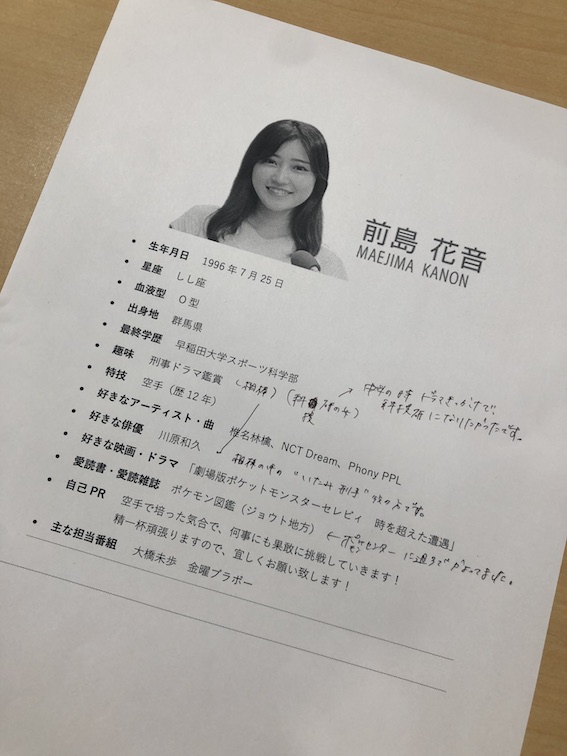 前島 花音
MAEJIMA KANON
• 生年月日 1996年7月25日
• 星座 しし座
• 血液型 O型
• 出身地 群馬県
• 最終学歴 早稲田大学スポーツ科学部
• 趣味 刑事ドラマ鑑賞 (相棒) (科捜研の女)
→ 中学の時 ドラマきっかけで、
科捜研になりたかったです。
• 特技 空手(歴12年)
• 好きなアーティスト・曲 椎名林檎、NCT Dream、Phony PPL
• 好きな俳優 川原和久 相棒の中の"いたみ刑事"役の人です。
• 好きな映画・ドラマ 「劇場版ポケットモンスターセレビィ 時を超えた遭遇」
• 愛読書・愛読雑誌 ポケモン図鑑(ジョウト地方) ←ポケモンセンターに週5でかよってました。
• 自己PR 空手で培った気合で、何事にも果敢に挑戦していきます!
精一杯頑張りますので、宜しくお願い致します!
• 主な担当番組 大橋未歩 金曜ブラボー